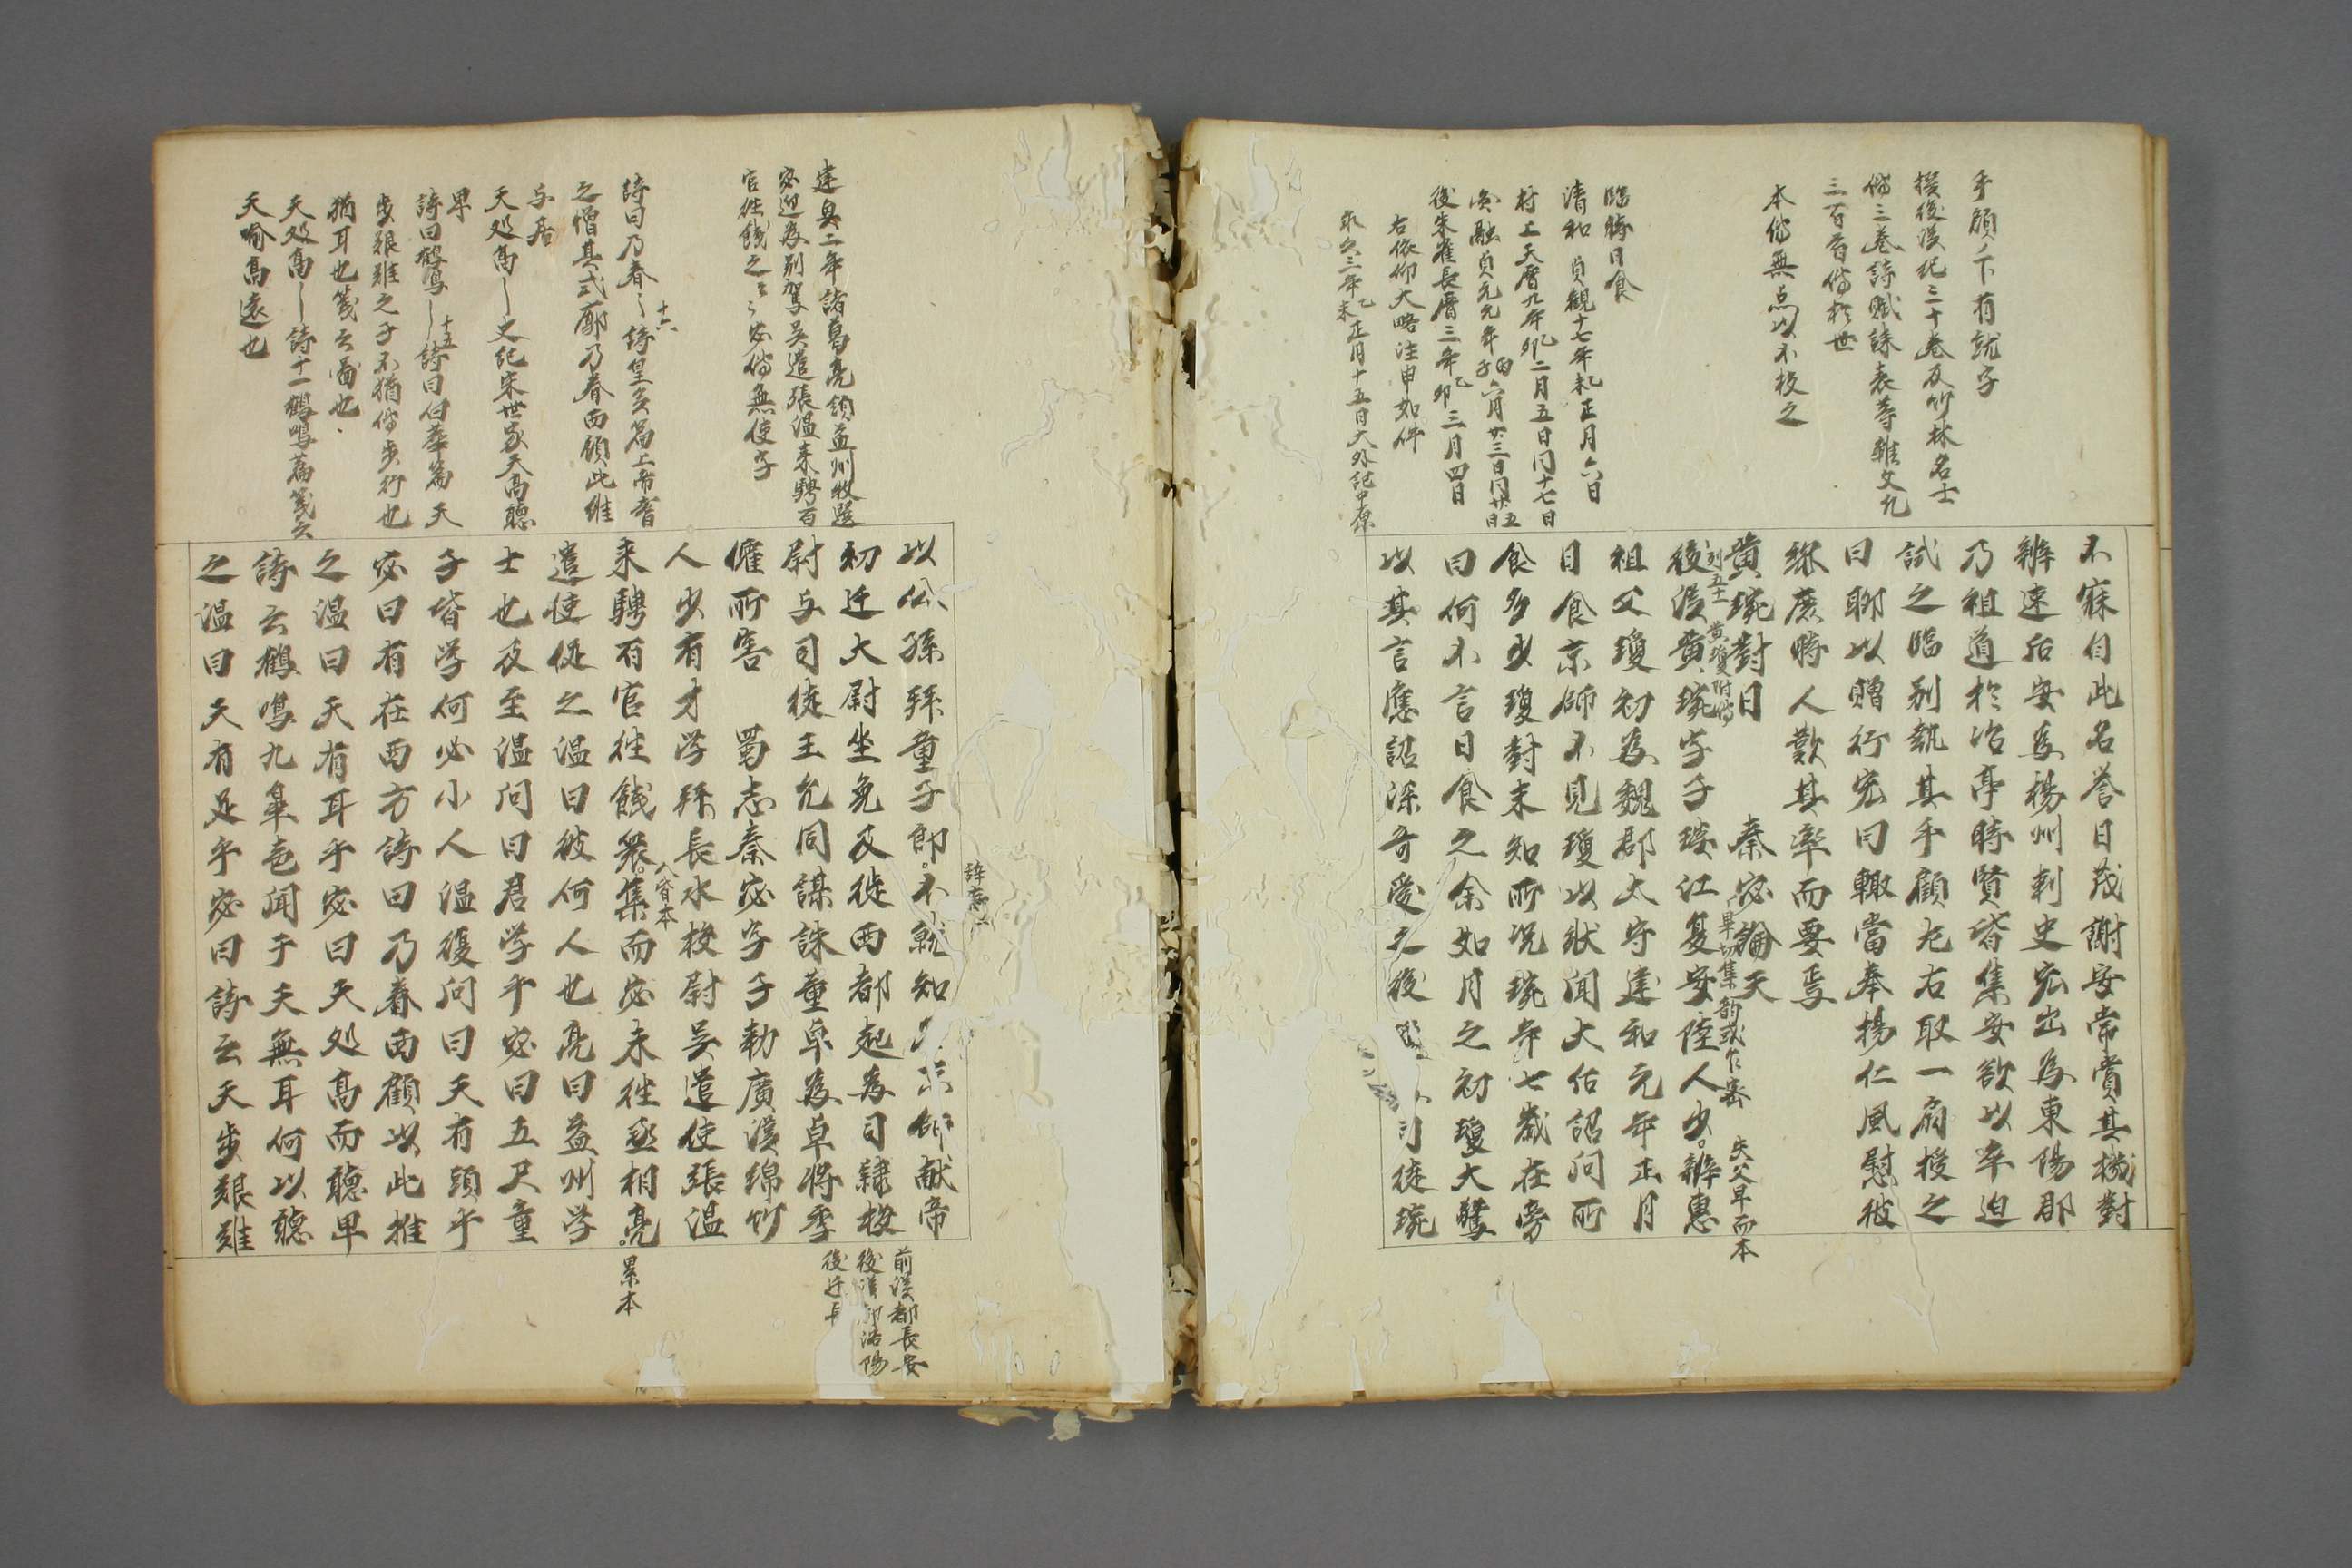 乎顧ノ下有就字
撰後漢紀三十卷及竹林名士
傳三卷詩賦誄表等雜文凡
三百首傳於世
本傳無点以不校之
臨時日食
清和 貞観十七年乙未正月六日
村上天暦九年乙卯二月五日同十七日
円融貞元元年丙子六月廿三日同廿五日
後朱雀長暦三年乙卯三月四日
右依仰大略注申如件
永久三年乙未正月十五日大外記中原
不寐自此名誉日茂謝安常賞其機對
辨速后安為楊州刺史宏出為東陽郡
乃祖道於冶亭時賢皆集安欲以卒迫
試之臨別執其手顧尤右取一扇授之
曰聊以贈行宏同輙當奉揚仁風慰彼
黎庶時人歎其率而要焉
黄琬對日 秦宓論天
列五十一 黄瓊附傳
後漢黄琬字子琰江夏安陸人少辨惠
失父早而本
祖父瓊初為魏郡太守建和元年正月
日食京師不見瓊以狀聞大后詔問所
食多少瓊對未知所况琬年七歲在旁
曰何不言日食之余如月之初瓊大驚
以其言應詔深奇愛之後 司徒琬
建興二年諸葛亮領益州牧選
宓迎為別駕吳遣張温来聘百
官徃餞之〻〻宓傳無使字
詩曰乃眷〻十六詩皇矣篇上帝耆
之憎其式廓乃眷西顧此維
与居
天処高〻史記宋世家天高聽
卑
詩曰鶴鳴〻十五詩曰白華篇天
步艱難之子不猶傳步行也
猶耳也箋云啚也
天処高〻詩十一鶴鳴篇箋云
天喻高遠也
以公孫拜童子郎不就知名京師献帝
辞
初迁大尉坐免及徙西都起為司隷校
尉与司徒王允同謀誅董卓為卓將季
傕所害 蜀志秦宓字子勅廣漢綿竹
人少有才学拜長水校尉吳遣使張温
来聘百官徃餞衆集而宓未徃丞相亮
人皆本
累本
遣使促之温曰彼何人也亮曰益州学
士也及至温問曰君学乎宓曰五尺童
子皆学何必小人温復問曰天有頭乎
宓曰有在西方詩曰乃眷西顧以此推
之温曰天有耳乎宓曰天処高而聽卑
詩云鶴鳴九皐声聞于天無耳何以聽
之温曰天有足乎宓曰詩云天步艱難
前漢都長安
後漢都洛陽
後迁長